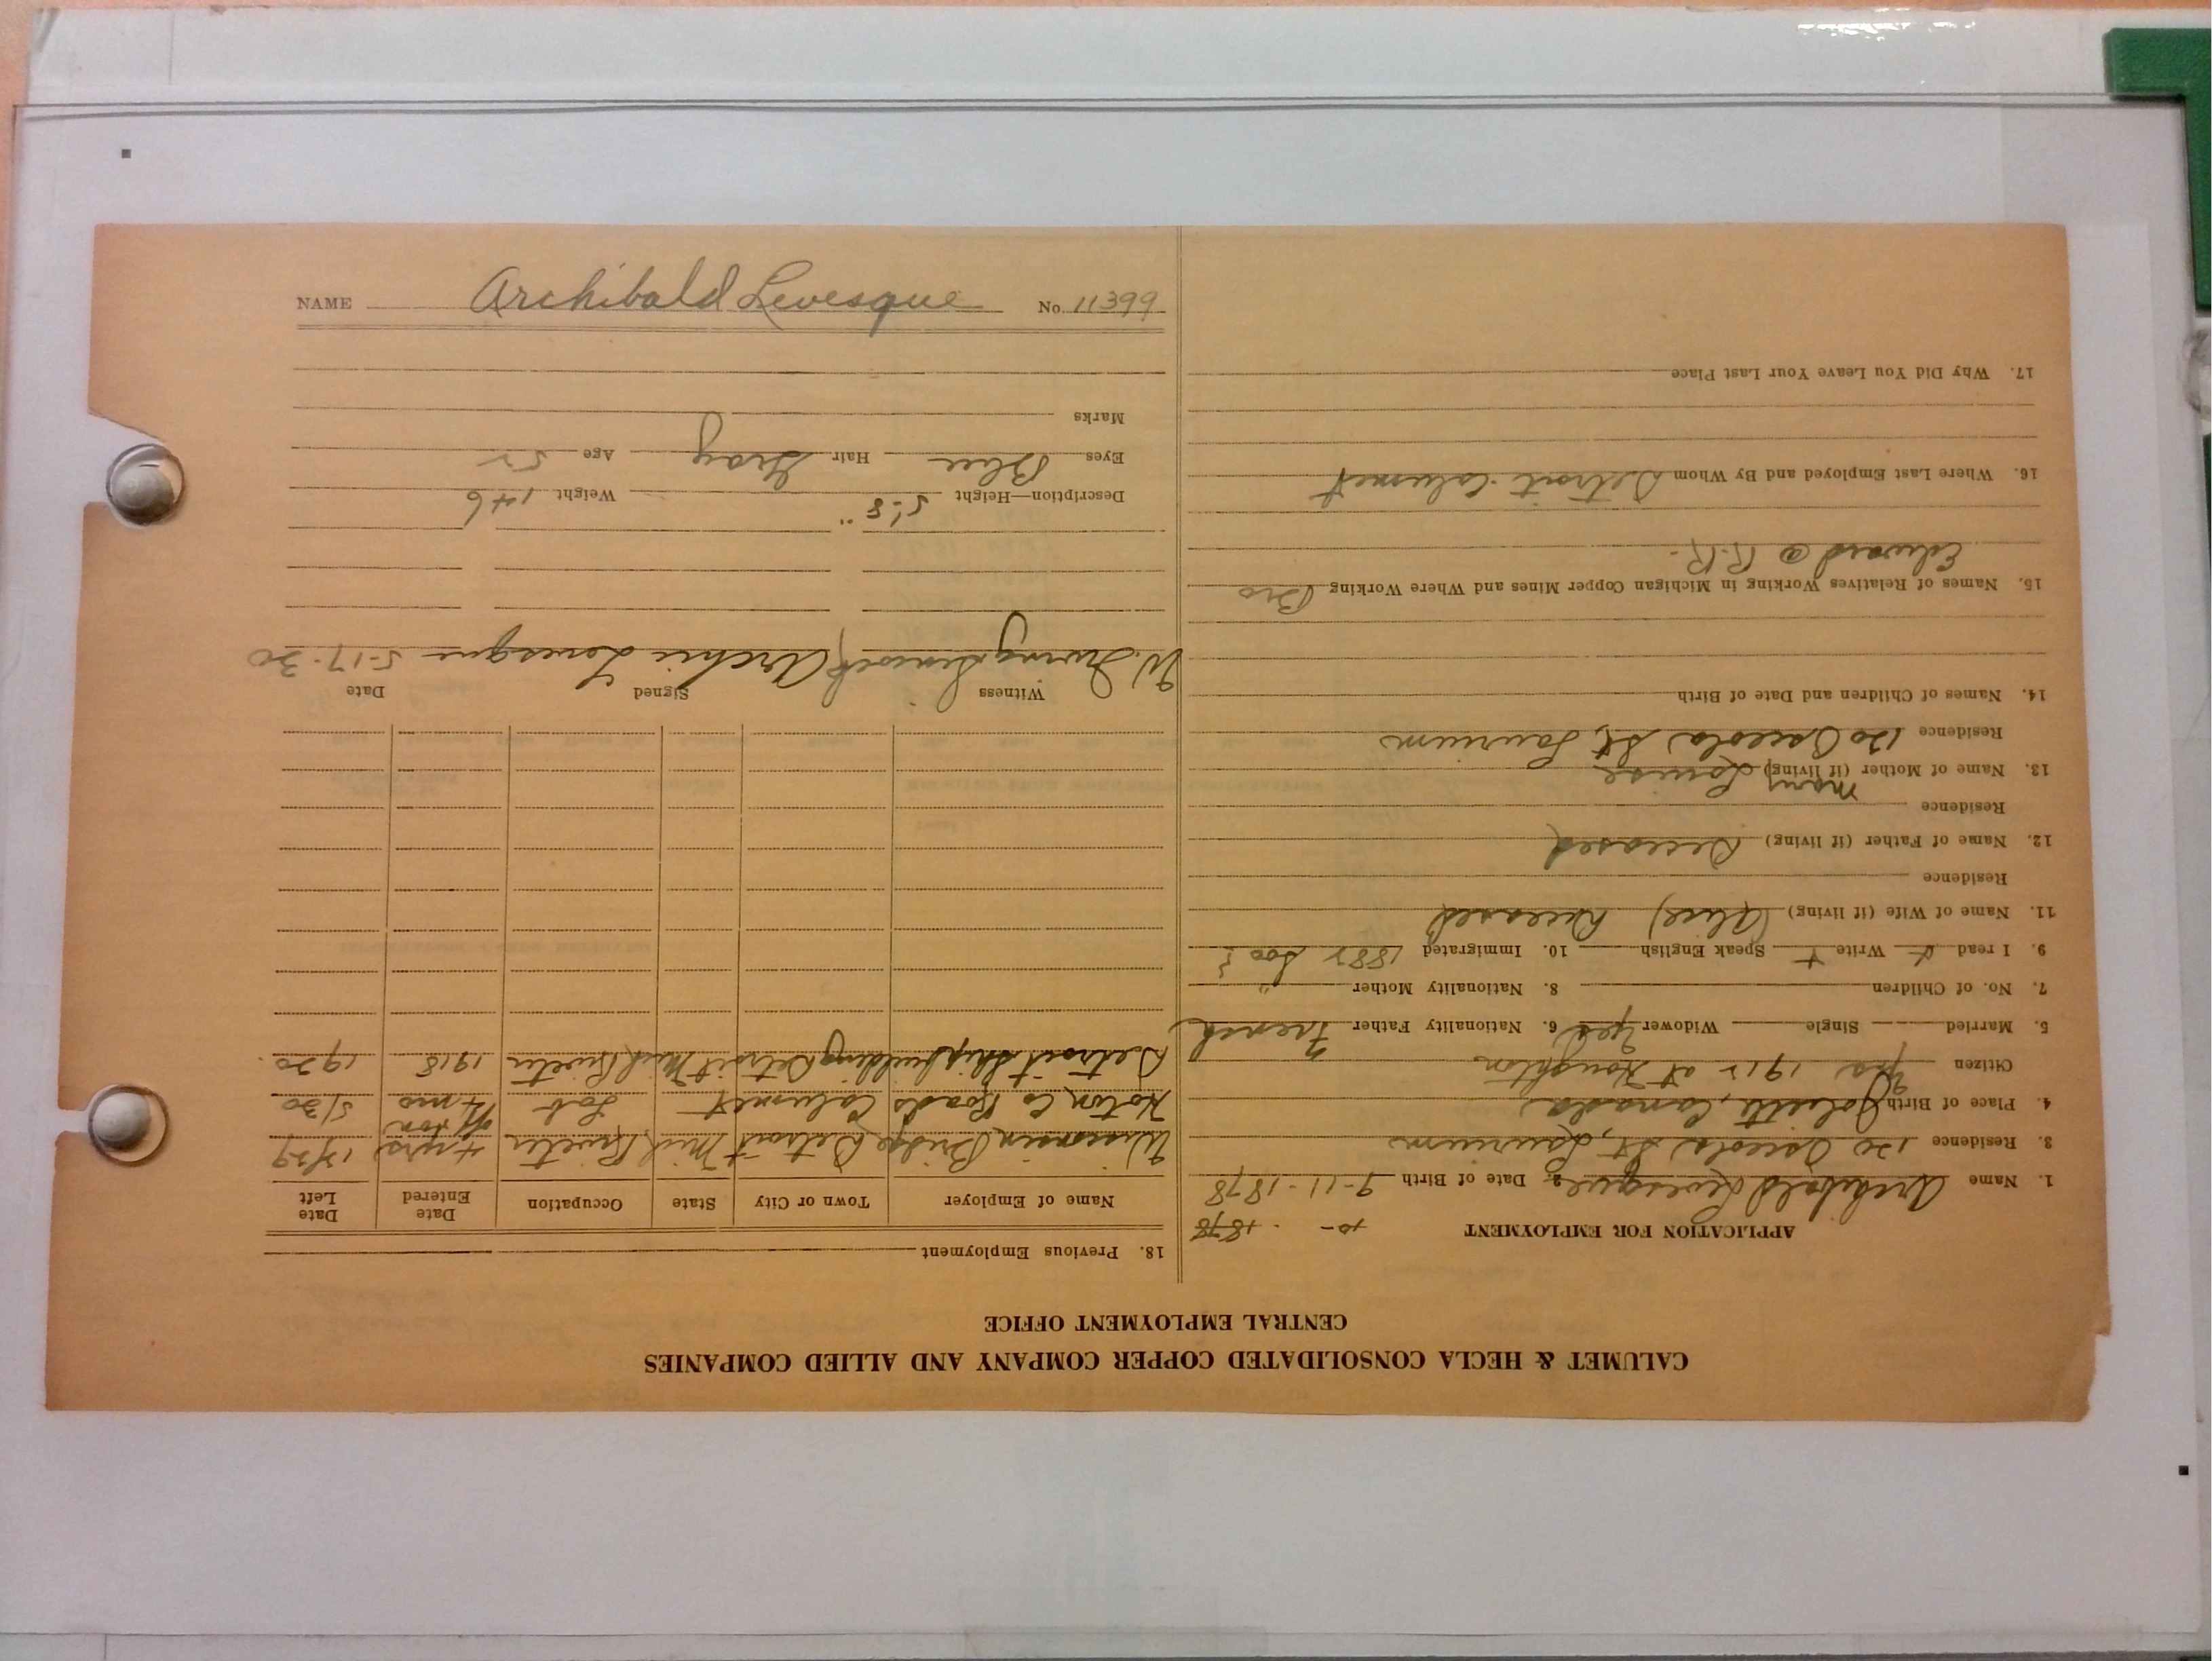 CALUMET & HECLA CONSOLIDATED COPPER COMPANY AND ALLIED COMPANIES
CENTRAL EMPLOYMENT OFFICE
APPLICATION FOR EMPLOYMENT 10- 1878
1. Name Archibald Levesque 2. Date of Birth 9-11-1878
3. Residence 120 Osceola St, Laurium
4. Place of Birth Joliette, Canada
Citizen Yes 1912 at Houghton
5. Married Single Widower Yes 6. Nationality Father French
7. No. of Children 8. Nationality Mother "
9. I read + Write + Speak English 10. Immigrated 1882 Soo
11. Name of Wife (if living) (Alice) Deceased
Residence
12. Name of Father (if living) Deceased
Residence
13. Name of Mother (if living) Mary Louise
Residence 120 Osceola St, Laurium
14. Names of Children and Date of Birth
15. Names of Relatives Working in Michigan Copper Mines and Where Working Bro
Edward @ R.R.
16. Where Last Employed and By Whom Detroit - Calumet
17. Why Did You Leave Your Last Place
18. Previous Employment
Name of Employer Town or City State Occupation Date Entered Date Left
Wisconsin Bridge Detroit Mich Riveter 4 yrs off & on 12/29
Hoton Co Roads Calumet Lab 4 mos 5/30
Detroit Shipbuilding Detroit Mich Riveter 1918 1920
Witness Signed Date
W. Irving Archie Levesque 5-17-30
Description—Height 5'-8" Weight 146
Eyes Blue Hair Gray Age 52
Marks
NAME Archibald Levesque No. 11399